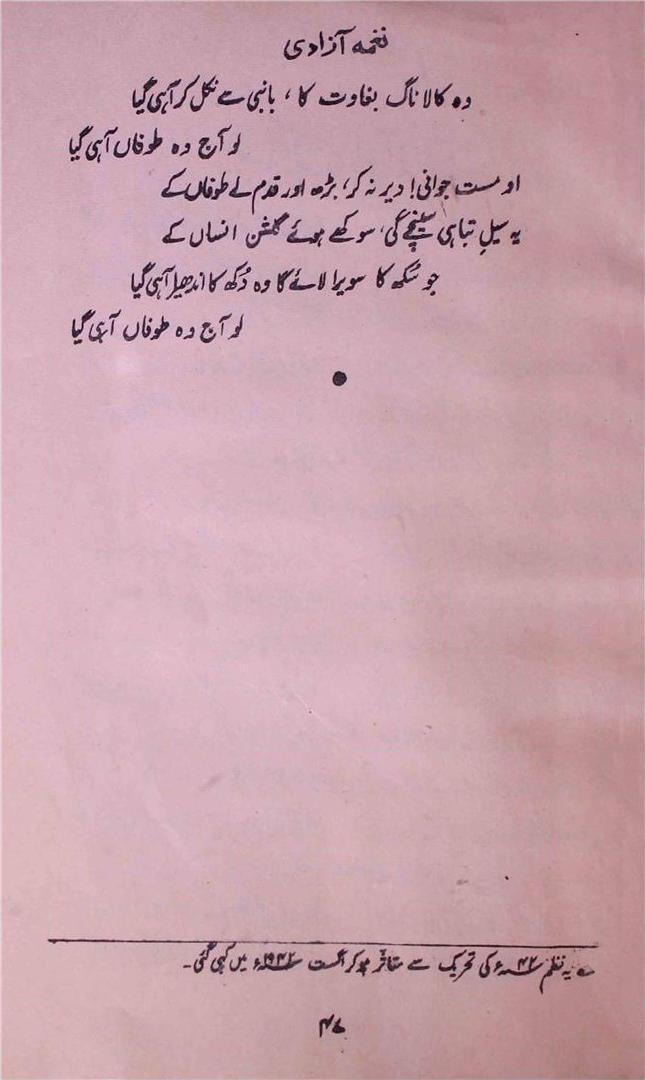 نغمہ آزادی
وہ کالا ناگ بغاوت کا، بانبی سے نکل کر آ ہی گیا
لو آج وہ طوفاں آ ہی گیا
او مست جوانی! دیر نہ کر، بڑھ اور قدم لے طوفاں کے
یہ سیلِ تباہی سینچے گی، سوکھے ہوئے گلشن انساں کے
جو سُکھ کا سویرا لائے گا وہ دُکھ کا اندھیرا آ ہی گیا
لو آج وہ طوفاں آ ہی گیا
یہ نظم ۴۲ء کی تحریک سے متاثر ہو کر اگست ۱۹۴۲ء میں کہی گئی۔
۴۷